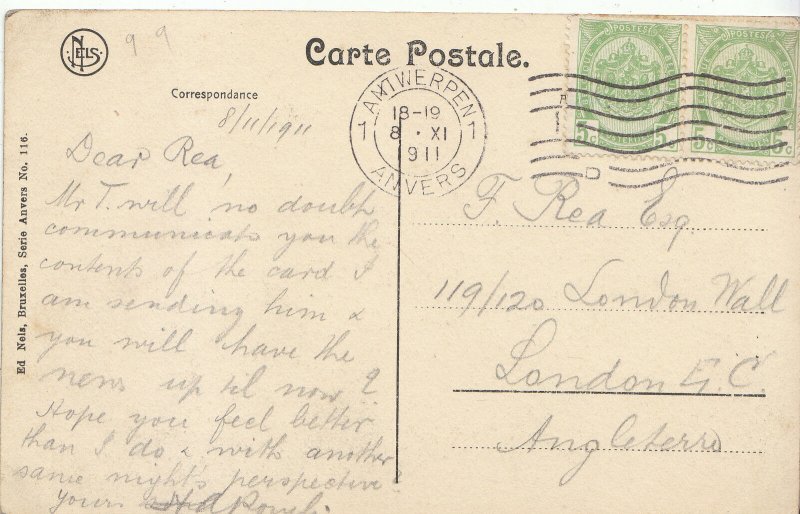 NELS
99
Carte Postale.
Correspondance
8/11/1911
Dear Rea,
Mr T. will no doubt
communicate you the
contents of the card I
am sending him &
you will have the
news up til now.
Hope you feel better
than I do & with another
same night's perspective
Yours
Ed Nels, Bruxelles, Serie Anvers No. 116.
ANTWERPEN
1 18-19 1
8 · XI
911
ANVERS
POSTES POSTES
5c 5c 5c 5c
F. Rea Esq.
119/120 London Wall
London E.C.
Angleterre